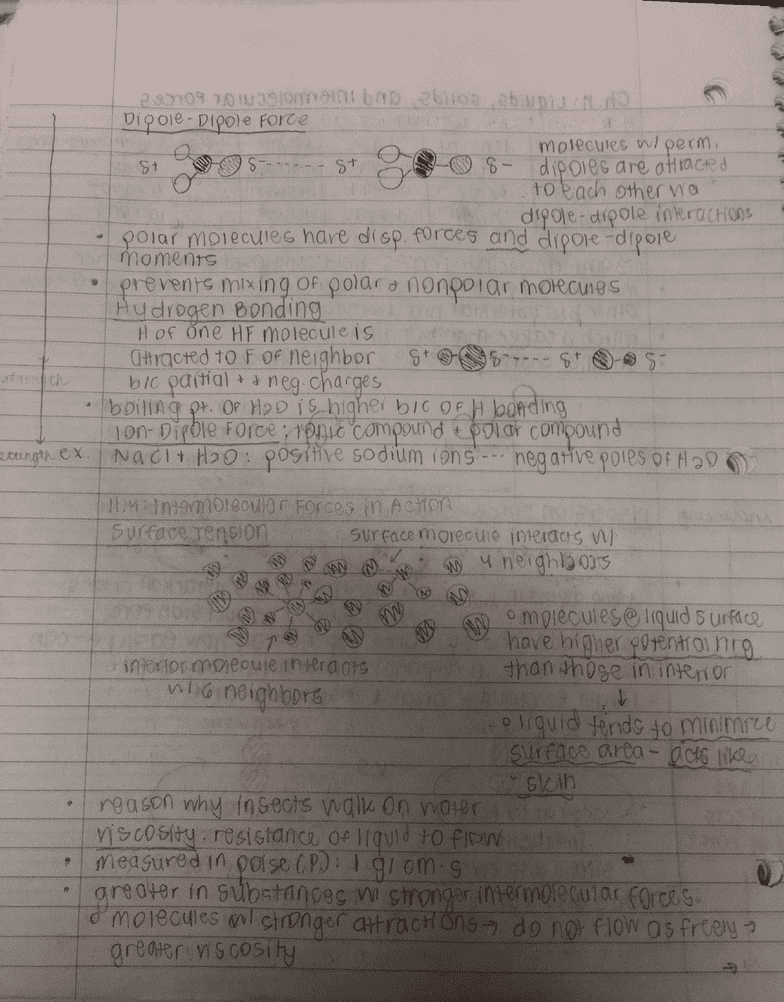 Dipole-Dipole Force
δ+ δ- ------ δ+ δ-
molecules w/ perm.
dipoles are attraced
to each other via
dipole-dipole interactions
• polar molecules have disp. forces and dipole-dipole
moments
• prevents mixing of polar + nonpolar molecules
Hydrogen Bonding
H of one HF molecule is
attracted to F of neighbor
δ+ δ- ----- δ+ δ-
b/c partial + + neg. charges
strength
• boiling pt. of H2O is higher b/c of H bonding
Ion-Dipole Force: ionic compound + polar compound
strength ex. NaCl + H2O: positive sodium ions --- negative poles of H2O
11.4: Intermolecular Forces in Action
Surface Tension
surface molecule interacts w/
4 neighbors
interior molecule interacts
w/ 6 neighbors
o molecules @ liquid surface
have higher potential nrg
than those in interior
↓
o liquid tends to minimize
surface area - acts like
"skin"
• reason why insects walk on water
viscosity: resistance of liquid to flow
• measured in poise (P): 1 g/cm·s
• greater in substances w/ stronger intermolecular forces
o molecules w/ stronger attractions → do not flow as freely →
greater viscosity
→